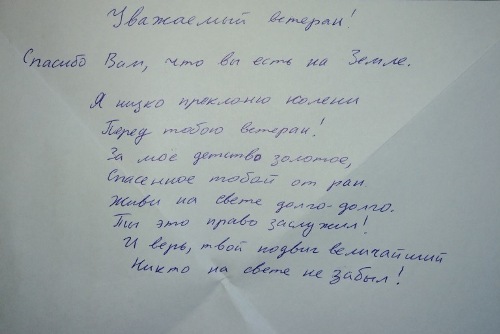 Уважаемый ветеран!
Спасибо Вам, что вы есть на Земле.
Я низко преклоню колени
Перед тобою ветеран!
За мое детство золотое,
Спасенное тобой от ран.
Живи на свете долго-долго.
Ты это право заслужил!
И верь, твой подвиг величайший
Никто на свете не забыл!